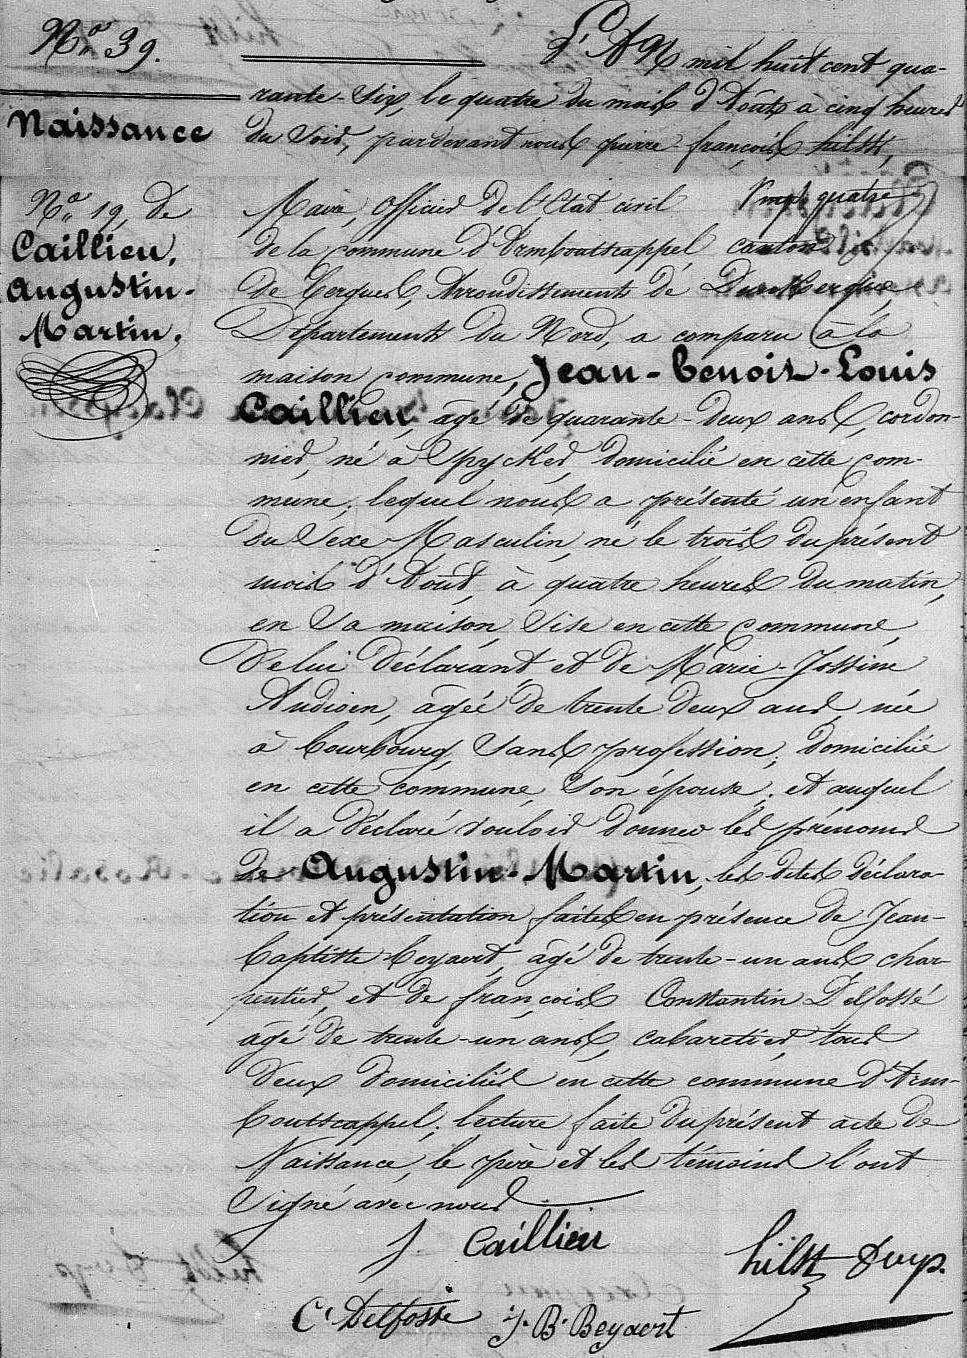 N.º 39.
Naissance
N.º 19, de
Caillieu,
Augustin-
Martin.
L'AN mil huit cent qua-
rante-Six, le quatre du mois d'Août a cinq heures
du Soir, pardevant nous pierre françois hilst,
Maire, Officier de l'Etat civil
de la commune d'Armboutscappel canton
de Bergues, Arrondissement de Dunkerque,
Département du Nord, a comparu à la
maison commune, Jean-Benoit-Louis
Caillieu, âgé de quarante-deux ans, cordon-
nier, né à Spycker, domicilié en cette com-
mune, lequel nous a présenté un enfant
du Sexe Masculin, né le trois du présent
mois d'Août, à quatre heures du matin,
en Sa maison, Sise en cette commune,
de lui déclarant, et de Marie-Jossine
Audioen, âgée de trente deux ans, née
à Bourbourg, Sans profession, domiciliée
en cette commune, Son épouse; et auquel
il a déclaré vouloir donner les prénoms
de Augustin-Martin, les dites déclara-
tion et présentation faites en présence de Jean-
Baptiste Beyaert, âgé de trente-un ans, char-
pentier, et de françois Constantin Delfosse
âgé de trente-un ans, cabaretier, tous
deux domiciliés en cette commune d'Arm-
boutscappel; lecture faite du présent acte de
Naissance, le père et les témoins l'ont
Signé avec nous.
J. Caillieu
hilst
C. Delfosse
J. B. Beyaert